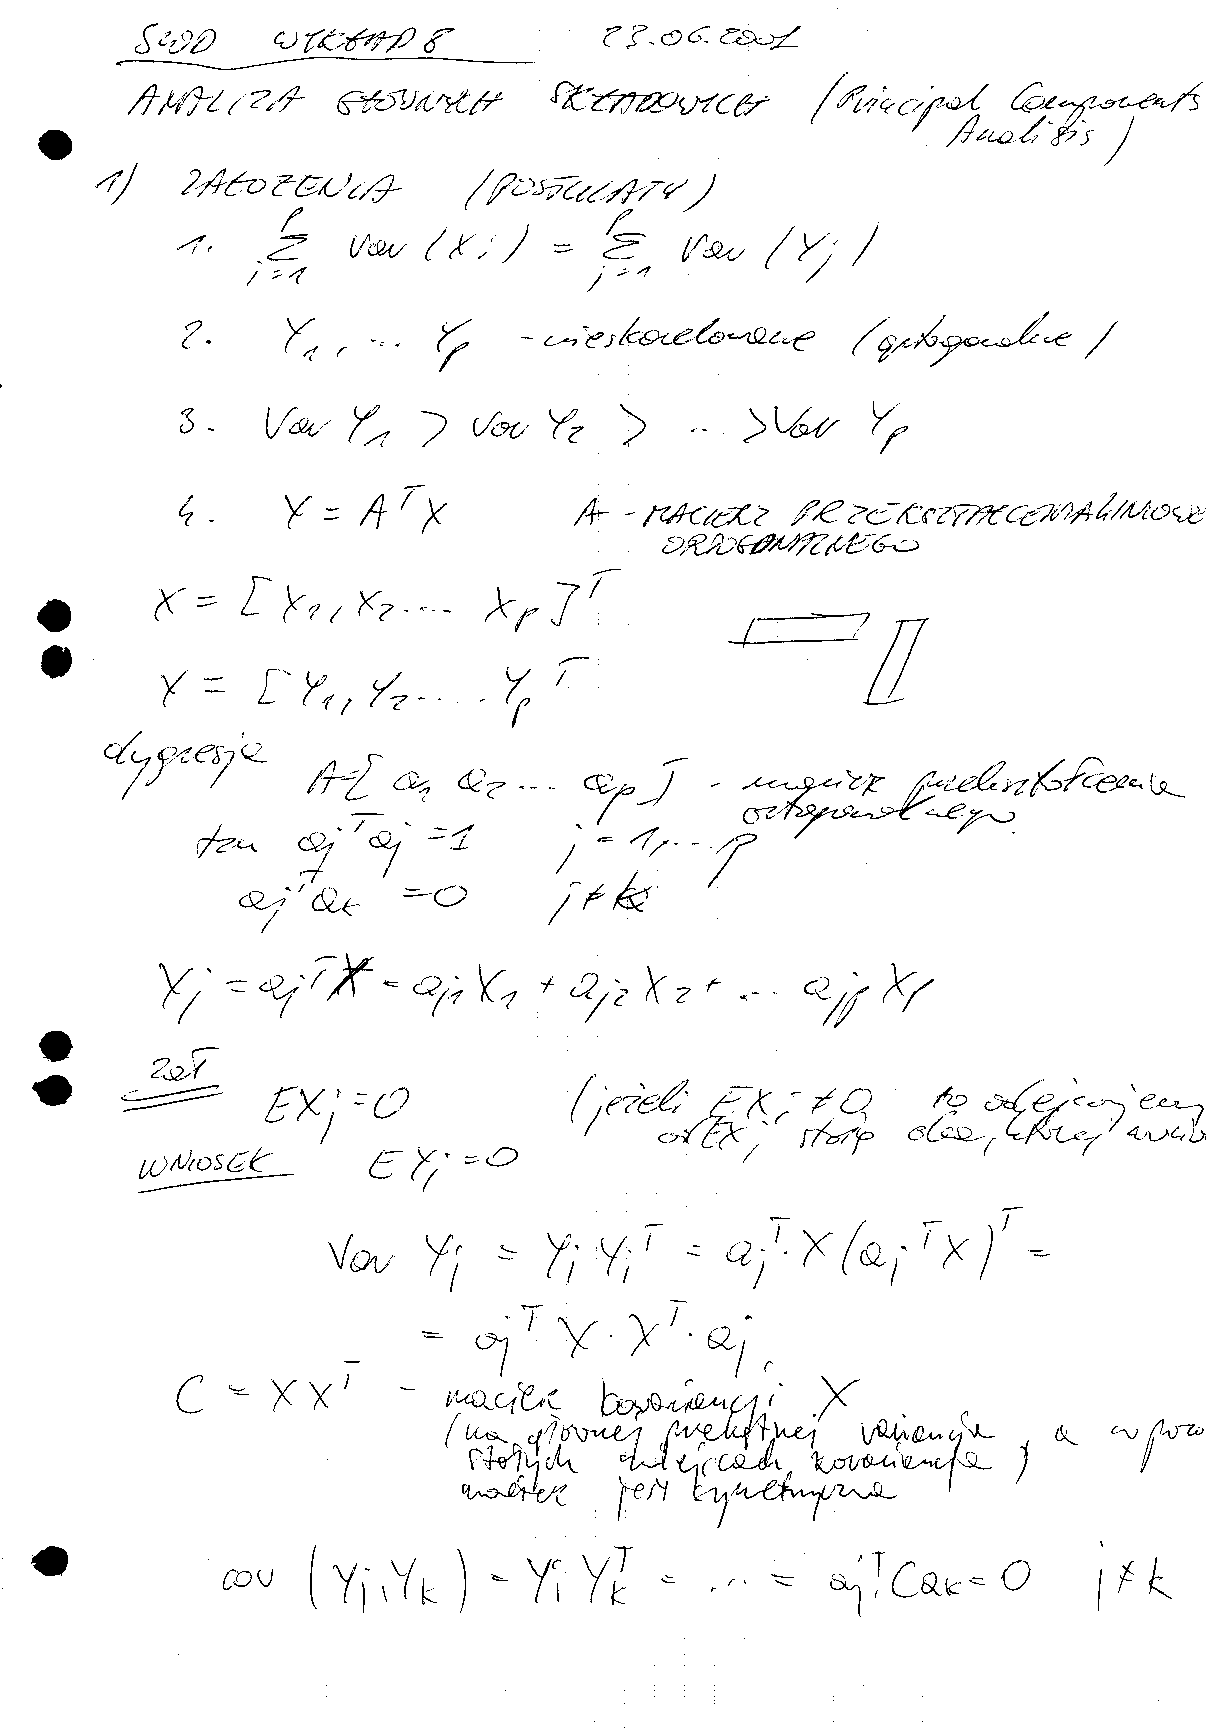 SWOD WYKŁAD 8 23.06.2001
ANALIZA GŁÓWNYCH SKŁADOWYCH (Principal Components
Analisis)
1) ZAŁOŻENIA (POSTULATY)
1. \sum_{j=1}^{p} Var (X_j) = \sum_{j=1}^{p} Var (Y_j)
2. Y_1, ... Y_p - nieskorelowane (ortogonalne)
3. Var Y_1 > Var Y_2 > ... > Var Y_p
4. Y = A^T X A - MACIERZ PRZEKSZTAŁCENIA LINIOWE
ORTOGONALNEGO
X = [X_1, X_2 .... X_p]^T
Y = [Y_1, Y_2 .... Y_p^T
dygresja
A=[a_1 a_2 ... a_p] - macierz przekształcenia
ortogonalnego
tzn a_j^T a_j = 1 j = 1, ... p
a_j^T a_k = 0 j ≠ k
Y_j = a_j^T X = a_{j1} X_1 + a_{j2} X_2 + ... a_{jp} X_p
Zał
EX_j = 0 (jeżeli EX_j ≠ 0 to odejmujemy
od X_j stałą
WNIOSEK EY_j = 0
Var Y_j = Y_j Y_j^T = a_j^T · X (a_j^T X)^T =
= a_j^T · X · X^T · a_j
C = X X^T - macierz kowariancji X
(na głównej przekątnej wariancje, a w pozo
stałych miejscach kowariancje)
macierz jest symetryczna
cov (Y_j, Y_k) = Y_j Y_k^T = ... = a_j^T C a_k = 0 j ≠ k